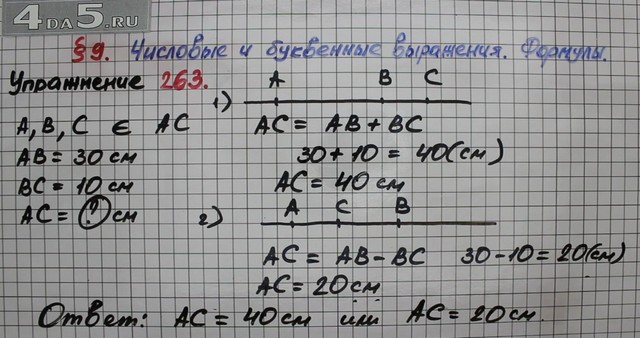 4 ДА 5.RU
§ 9. Числовые и буквенные выражения. Формулы.
Упражнение 263.
1) A B C
A, B, C ∈ AC
AC = AB + BC
AB = 30 см
30 + 10 = 40 (см)
BC = 10 см
AC = 40 см
AC = ? см
2) A C B
AC = AB - BC 30 - 10 = 20 (см)
AC = 20 см
Ответ: AC = 40 см или AC = 20 см.